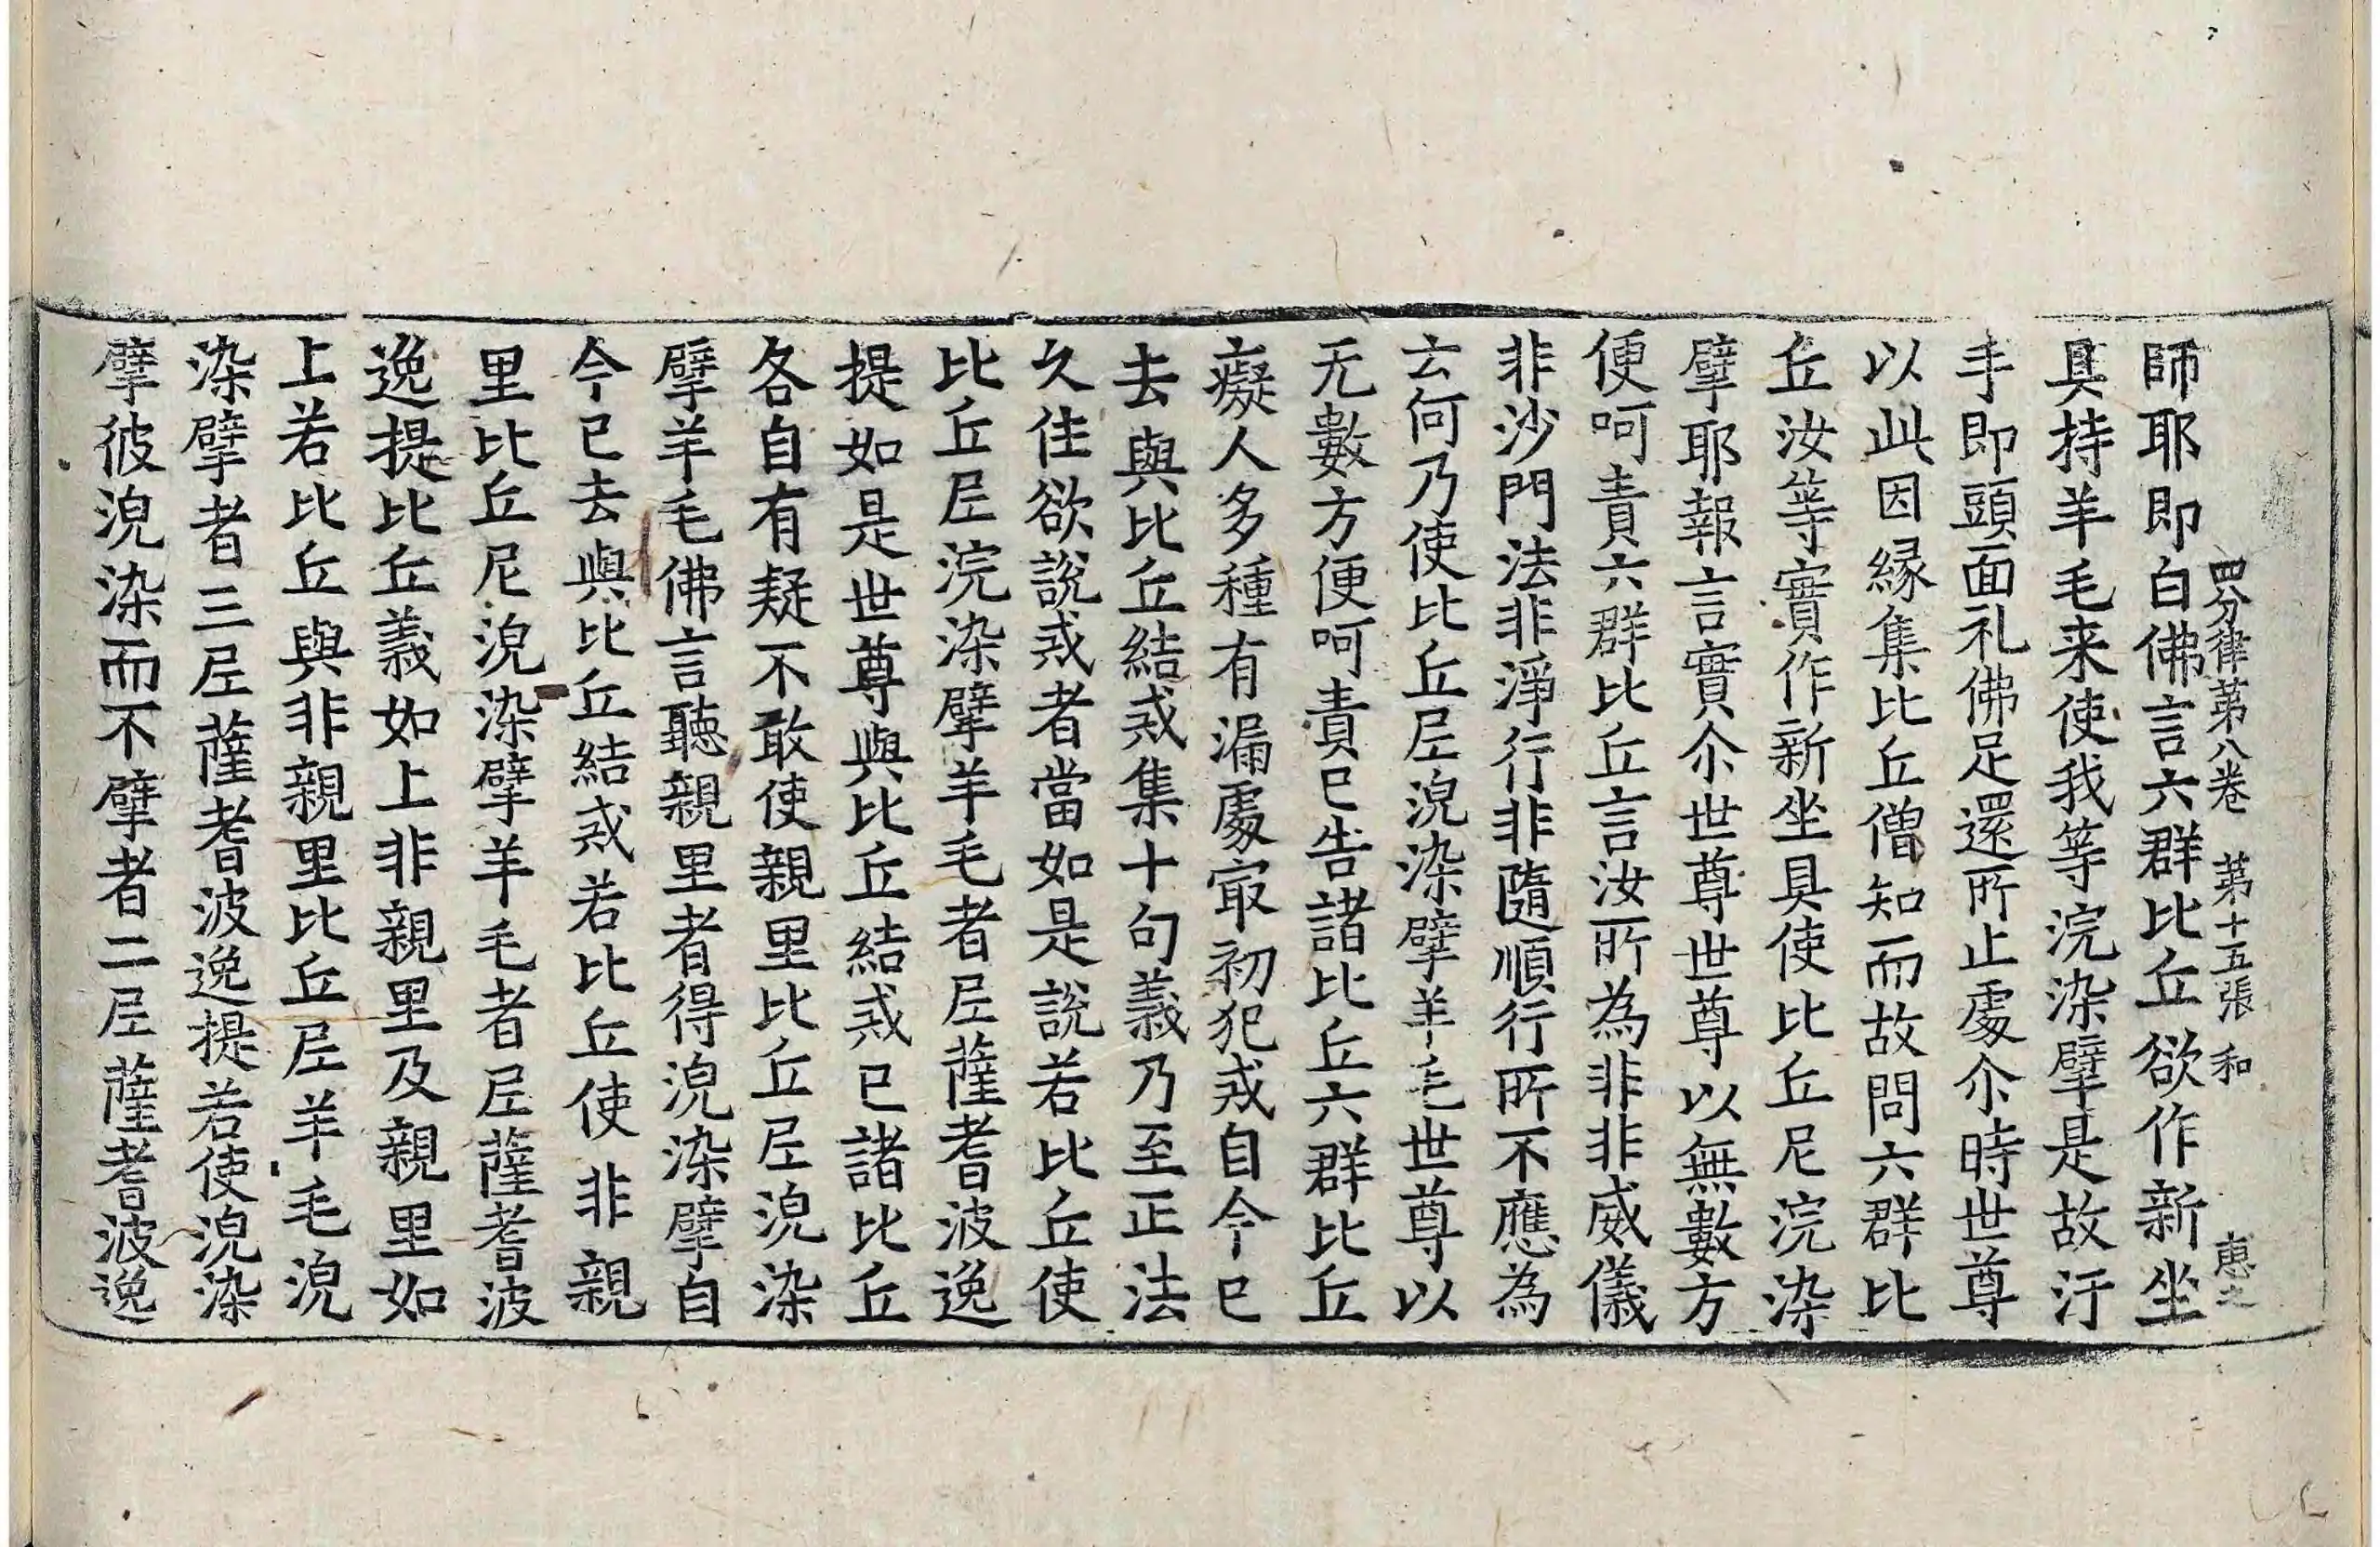 四分律第八卷 第十五張 和 惠之
師耶即白佛言六群比丘欲作新坐
具持羊毛来使我等浣染擘是故汙
手即頭面礼佛足還所止處尒時世尊
以此因緣集比丘僧知而故問六群比
丘汝等實作新坐具使比丘尼浣染
擘耶報言實尒世尊世尊以無數方
便呵責六群比丘言汝所為非非威儀
非沙門法非淨行非隨順行所不應為
云何乃使比丘尼浣染擘羊毛世尊以
无數方便呵責已告諸比丘六群比丘
癡人多種有漏處㝡初犯戒自今已
去與比丘結戒集十句義乃至正法
久住欲說戒者當如是說若比丘使
比丘尼浣染擘羊毛者尼薩耆波逸
提如是世尊與比丘結戒已諸比丘
各自有疑不敢使親里比丘尼浣染
擘羊毛佛言聽親里者得浣染擘自
今已去與比丘結戒若比丘使非親
里比丘尼浣染擘羊毛者尼薩耆波
逸提比丘義如上非親里及親里如
上若比丘與非親里比丘尼羊毛浣
染擘者三尼薩耆波逸提若使浣染
擘彼浣染而不擘者二尼薩耆波逸